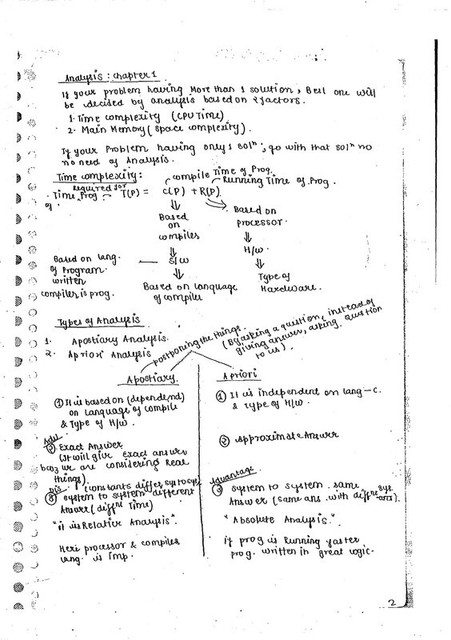 Analysis : chapter 1
If your problem having More than 1 solution, Best one will
be decided by analysis based on 2 factors.
1. Time complexity (CPU Time)
2. Main Memory (space complexity).
If your Problem having only 1 solⁿ, go with that solⁿ no
no need of Analysis.
Time complexity:
compile Time of Prog.
Running Time of Prog.
required for
Time Prog T(P) = C(P) + R(P)
of
Based on compiler
Based on processor.
S/w
H/w
Based on lang. of Program written
compiler is prog.
Based on language of compile
Type of Hardware.
Types of Analysis
1. Apostiary Analysis.
2. Apriori Analysis
postponing the things.
(By asking a question, instead of
giving answer, asking question
to us).
Apostiary
① It is based on (dependend)
on language of compile
& type of H/w.
② Exact Answer
(It will give exact answer
coz we are considering real
things)
Dis. (constants differ sys to sys)
③ system to system different
Answer (diffnt Time)
"it is Relative Analysis".
Here processor & compiles
lang. is Imp.
Apriori
① It is independent on lang - c.
& type of H/w.
② Approximate Answer
Advantage.
③ system to system same
Answer (same ans. with diffnt sys
"Absolute Analysis."
if prog is Running faster
prog. written in great logic.
2